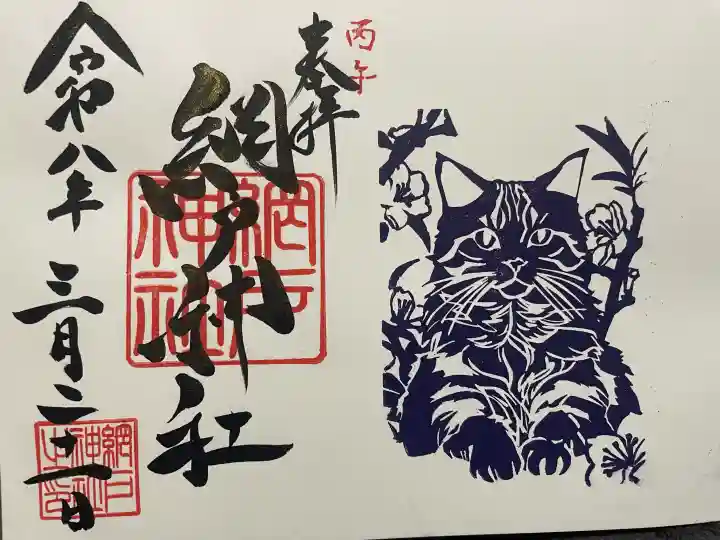 丙午
奉拝
網戸神社
令和八年三月二十一日
網戸神社
網戸神社之印